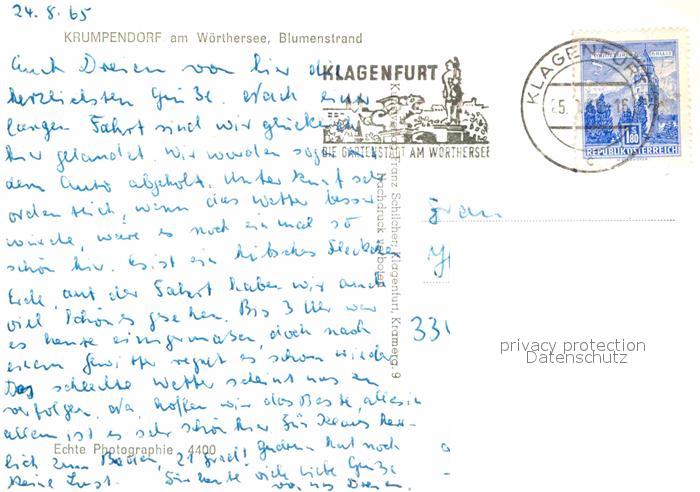 24.8.65
KRUMPENDORF am Wörthersee, Blumenstrand
Auch Dresen von hier die
herzlichsten Grüße. Nach einer
langen Fahrt sind wir glücklich
hier gelandet. Wir wurden sogar mit
dem Auto abgeholt. Unterkunft sehr
ordentlich, wenn das Wetter besser
würde, wäre es noch einmal so
schön hier. Es ist ein hübsches Fleckchen
Erde, auf der Fahrt haben wir auch
viel Schönes gesehen. Bis 3 Uhr war
es heute einigermaßen, doch nach
einem Gewitter regnet es schon wieder
Das schlechte Wetter scheint uns zu
verfolgen. Na, hoffen wir das Beste, alles in
allem ist es sehr schön hier für Klaus herr-
lich zum Baden, 21 Grad! hat noch
keine Lust. Für heute viele liebe Grüße
von uns Dresen.
Echte Photographie 4400
KLAGENFURT
DIE GARTENSTADT AM WÖRTHERSEE
Franz Schilcher, Klagenfurt, Kramerg. 9
Nachdruck verboten
KLAGENFURT
25.
c
1.80
REPUBLIK ÖSTERREICH
Frau
H
33
privacy protection
Datenschutz